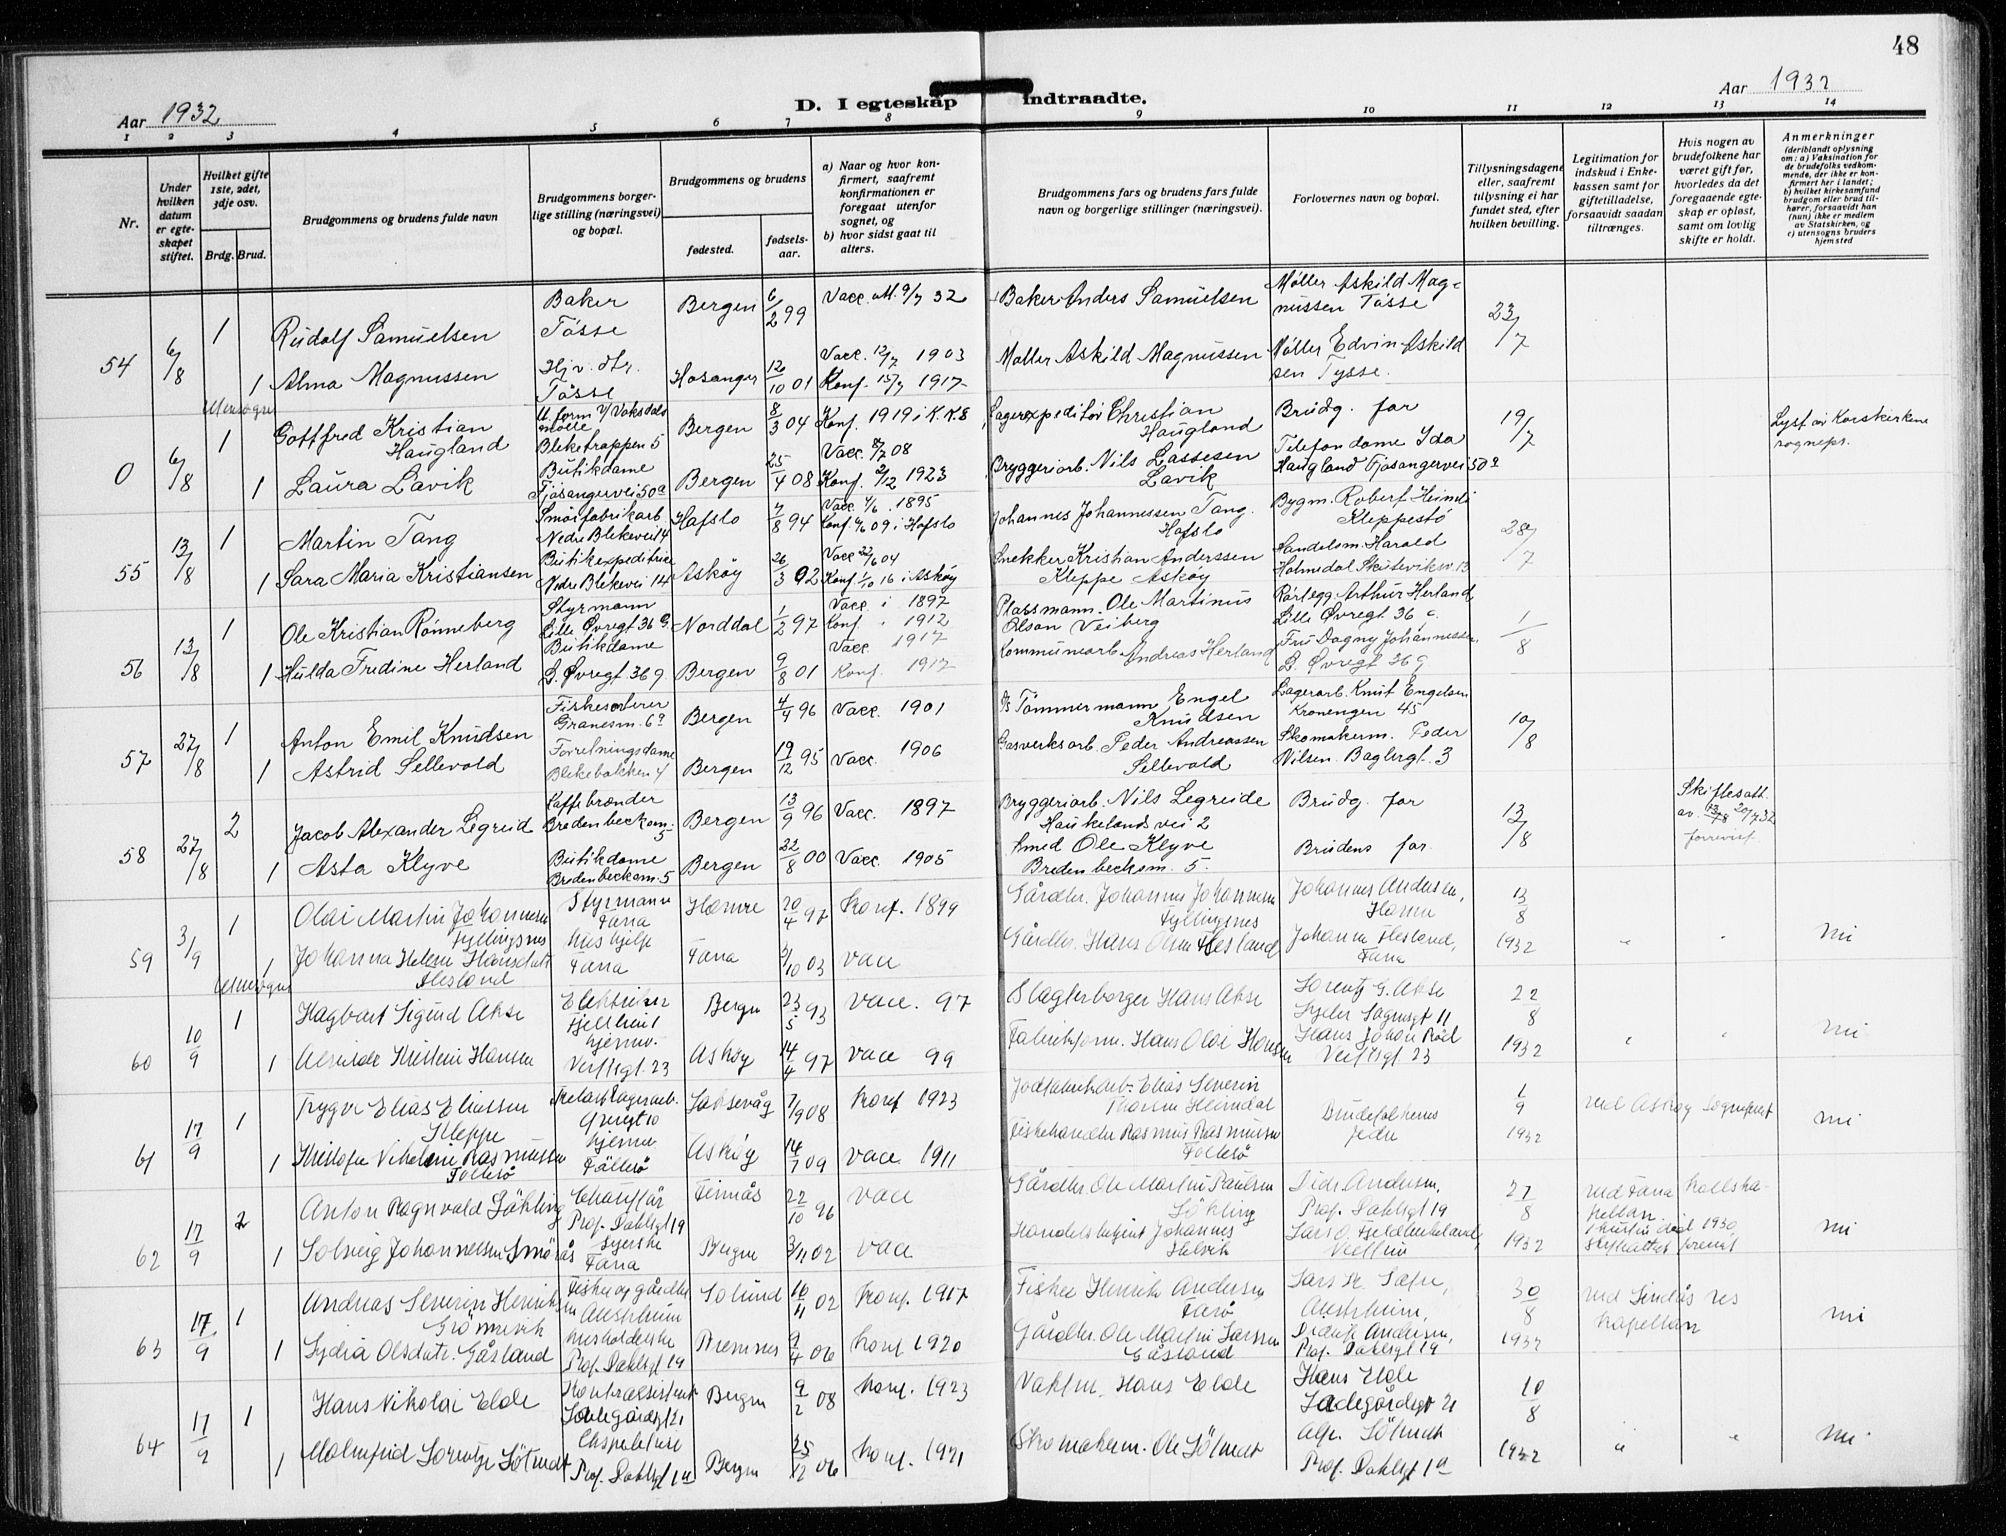 48
Aar 1932
D. I egteskap indtraadte.
Aar 1932
1 2 3 4 5 6 7 8 9 10 11 12 13 14
Nr.
Under hvilken datum er egteskapet stiftet.
Hvilket gifte 1ste, 2det, 3dje osv.
Brdg. Brud.
Brudgommens og brudens fulde navn
Brudgommens borgerlige stilling (næringsvei) og bopæl.
Brudgommens og brudens
fødested.
fødselsaar.
a) Naar og hvor konfirmert, saafremt konfirmationen er foregaat utenfor sognet, og
b) hvor sidst gaat til alters.
Brudgommens fars og brudens fars fulde navn og borgerlige stillinger (næringsvei).
Forlovernes navn og bopæl.
Tillysningsdagene eller, saafremt tillysning ei har fundet sted, efter hvilken bevilling.
Legitimation for indskud i Enkekassen samt for giftetilladelse, forsaavidt saadan tiltrænges.
Hvis nogen av brudefolkene har været gift før, hvorledes da det foregaaende egteskap er opløst, samt om lovlig skifte er holdt.
Anmerkninger
(deriblandt oplysning om: a) Vaksination for de brudefolks vedkommende, der ikke er konfirmert her i landet; b) hvilket kirkesamfund brudgom eller brud tilhører, forsaavidt han (hun) ikke er medlem av Statskirken, og c) utensogns bruders hjemsted
54 6/8 1 Rudolf Samuelsen Baker Tösse Bergen 6/2 99 Vacc. att. 9/7 32 Baker Anders Samuelsen Møller Askild Magnussen Tösse 23/7
1 Alma Magnussen Hj.v. dtr. Tösse Hosanger 12/10 01 Vacc. 1903 Konf. 1917 Møller Askild Magnussen Møller Edvin Askildsen Tysse.
Utensogns
0 6/8 1 Gottfred Kristian Haugland Bleketrappen 5 Bergen 8/3 04 Konf. 1919 i K.K. Lagerexpeditör Christian Haugland Brudg. far 19/7
1 Laura Lavik Butikdame Fjösangervei 50a Bergen 25/4 08 Vacc. 08 Konf. 1923 Bryggeriarb. Nils Lassesen Lavik Telefondame Ida Haugland Fjösangervei 50a
55 13/8 1 Martin Tang Smörfabrikarb Nedre Blekevei 14 Hafslo 7/8 94 Vacc. 1895 Konf. 09 i Hafslo Johannes Johannessen Tang. Hafslo Bygm. Robert Heimdi Kleppestö 28/7
1 Sara Maria Kristiansen Butikexpeditrice Nedre Blekevei 14 Askøy 26/3 92 Vacc. 04 Konf. 16 i Askøy Snekker Kristian Anderssen Kleppe Askøy Handelsm. Harald Holmedal Skutevikv. 13
56 13/8 1 Ole Kristian Rønneberg Styrmann Lille Øvregt 36 Norddal 1/2 97 Vacc. i 1897 Konf. i 1912 Plassmann. Ole Martinus Olson Veiberg Rørlegg. Arthur Herland Lille Øvregt 36 1/8
1 Hulda Fredine Herland Butikdame L. Øvregt. 36 Bergen 9/8 01 Vacc. 1917 Konf. 1917 Kommunearb. Andreas Herland Fru Dagny Johannessen L. Øvregt 36
57 27/8 1 Anton Emil Knudsen Fiskesorterer Bergen 4/4 96 Vacc. 1901 Tömmermann Engel Knudsen Lagerarb. Knut Engelsen Kronengen 45 10/8
1 Astrid Sellevold Forretningsdame Blekebakken 4 Bergen 19/12 95 Vacc. 1906 Gasverksarb. Peder Andreassen Sellevold Skomakerm. Peder Nilsen. Baglergt. 3
58 27/8 2 Jacob Alexander Legreid Kaffebrænder Bredenbecksm. 5 Bergen 13/9 96 Vacc. 1897 Bryggeriarb. Nils Legreide Haukelandsvei 2 Brudg. far 13/8 Skifteatt. av 29/7 32 forevist
1 Asta Klyve Butikdame Bredenbecksm. 5 Bergen 22/8 00 Vacc. 1905 Smed Ole Klyve Bredenbecksm. 5. Brudens far
59 3/9 1 Olai Martin Johannesen Fyllingsnes Styrmann Fana Hamre 20/4 97 Konf. 1899 Gårdbr. Johannes Johannesen Fyllingsnes Johannes Andersen, Hamre 13/8 1932
1 Johanna Helene Hansdatter Flesland Hushjelp Fana Fana 3/10 03 vacc Gårdbr. Hans Olsen Flesland Johannes Flesland, Fana " " nei
Utensogns
60 10/9 1 Hagbart Sigurd Akse Elektriker Bergen 23/5 93 vacc. 97 Slagterborger Hans Akse Lorentz G. Akse 22/8 1932
1 Kristine Hansen hjemv. Verftsgt. 23 Askøy 14/4 97 vacc 99 Hans Olai Hansen Verftsgt 23 " " nei
61 17/9 1 Trygve Elias Eliassen Kleppe Laksevåg 7/9 08 Konf 1923 Elias Severin Heimdal Brudefolkenes fedre 1/9 1932 ved Askøy Sogneprest
1 Rasmussen Follesø hjemme Follesø Askøy 14/7 09 vacc 1911 Fiskehandler Rasmus Rasmussen Follesø nei
62 17/9 2 Anton Ragnvald Søkling Chauffør Prof. Dahlsgt 19 Finnås 22/10 96 vacc Gårdbr. Ole Martin Paulsen Søkling Didr. Andersen, Prof. Dahlsgt 19 27/8 1932 ved Fana 1930
1 Solveig Johannessen Smörås Fana Bergen 3/11 02 vacc Johannes Helvik nei
63 17/9 1 Andreas Severin Henriksen Grönnevik Fisker og gårdbr. Austrheim Solund 16/11 02 Konf. 1917 Fisker Henrik Andersen Austrheim, 30/8 1932 ved Lindås res kapellan
1 Lydia Olsdatr. Gåsland Husholderske Prof. Dahlsgt 19 Bremnes 9/4 06 Konf 1920 Gårdbr. Ole Martin Larssen Gåsland Didrik Andersen, Prof. Dahlsgt 19 nei
64 17/9 1 Hans Nikolai Elde Ladegårdsgt 21 Bergen 9/2 08 Konf. 1923 Vaktm. Hans Elde Hans Elde Ladegårdsgt 21 10/8 1932
1 Malmfrid Lorentze Sölmedt Ekspeditrise Prof. Dahlsgt 1a Bergen 25/12 06 Konf. 1921 Skomakerm. Ole Sölmedt Alfr. Sölmedt Prof. Dahlsgt 1a " " nei